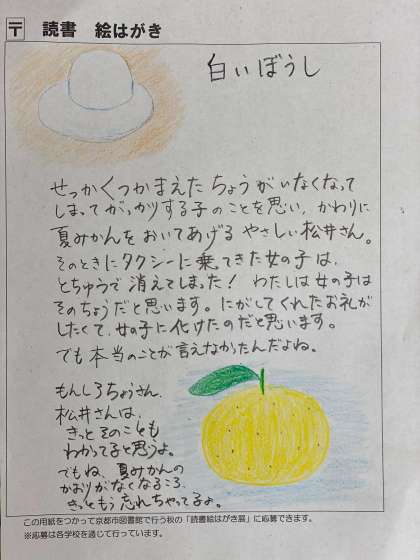 〒 読書 絵はがき
白いぼうし
せっかくつかまえたちょうがいなくなって
しまってがっかりする子のことを思い、かわりに
夏みかんをおいてあげるやさしい松井さん。
そのときにタクシーに乗ってきた女の子は、
とちゅうで消えてしまった！ わたしは女の子は
そのちょうだと思います。にがしてくれたお礼が
したくて、女の子に化けたのだと思います。
でも本当のことが言えなかったんだよね。
もんしろちょうさん、
松井さんは、
きっとそのことも
わかってると思うよ。
でもね、夏みかんの
かおりがなくなるころ、
きっともう忘れちゃってるよ。
この用紙をつかって京都市図書館で行う秋の「読書絵はがき展」に応募できます。
※応募は各学校を通じて行っています。